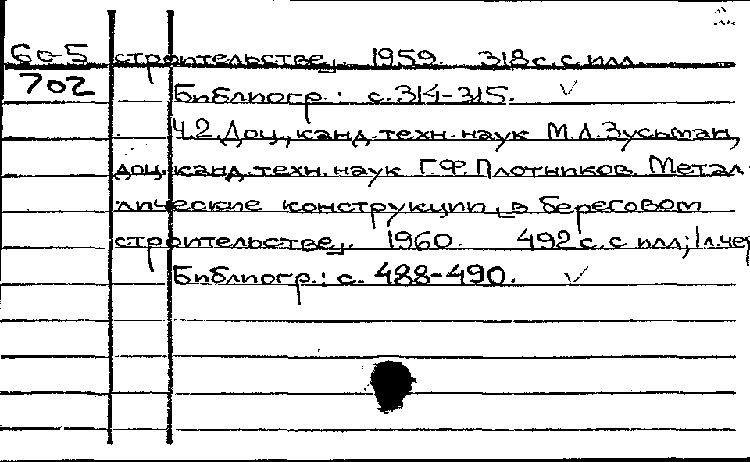 6с-5 строительстве. 1959. 318 с. с илл.
702 Библиогр.: с. 314-315.
Ч.2. Доц., канд. техн. наук М.Л. Зусьман,
доц. канд. техн. наук Г.Ф. Плотников. Метал-
лические конструкции в береговом
строительстве. 1960. 492 с. с илл; 1 л. чер
Библиогр.: с. 488-490.